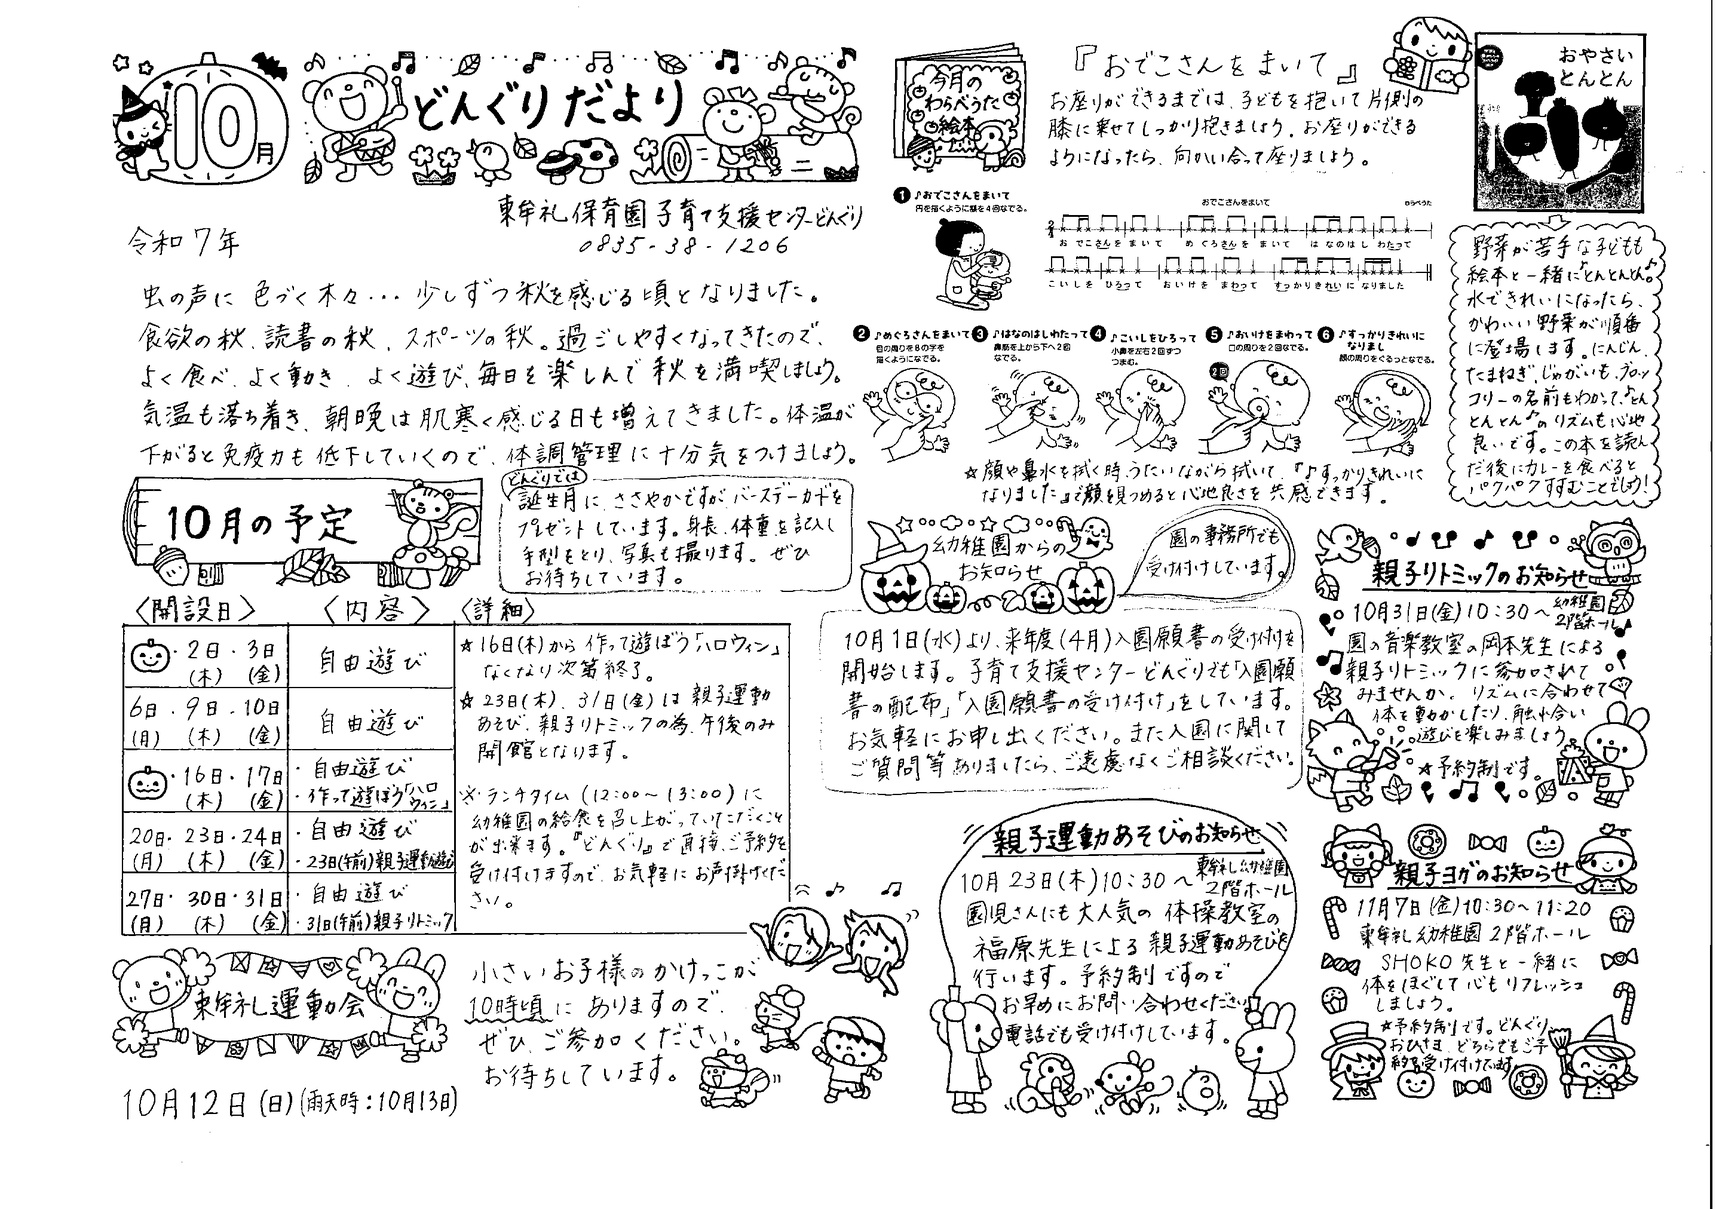 10月
どんぐりだより
東牟礼保育園子育て支援センターどんぐり
0835-38-1206
令和7年
虫の声に 色づく木々・・・少しずつ秋を感じる頃となりました。
食欲の秋、読書の秋、スポーツの秋。過ごしやすくなってきたので、
よく食べ、よく動き、よく遊び、毎日を楽しんで秋を満喫しましょう。
気温も落ち着き、朝晩は肌寒く感じる日も増えてきました。体温が
下がると免疫力も低下していくので、体調管理に十分気をつけましょう。
10月の予定
どんぐりでは
誕生月に、ささやかですが、バースデーカードを
プレゼントしています。身長、体重を記入し
手型をとり、写真も撮ります。ぜひ
お待ちしています。
〈開設日〉 〈内容〉 〈詳細〉
・2日・3日
(木) (金)
自由遊び
6日・9日・10日
(月) (木) (金)
自由遊び
・16日・17日
(木) (金)
・自由遊び
・作って遊ぼう「ハロウィン」
20日・23日・24日
(月) (木) (金)
・自由遊び
・23日(午前)親子運動遊び
27日・30日・31日
(月) (木) (金)
・自由遊び
・31日(午前)親子リトミック
★16日(木)から 作って遊ぼう「ハロウィン」
なくなり次第終了。
★23日(木)、31日(金)は 親子運動
あそび、親子リトミックの為、午後のみ
開館となります。
※・ランチタイム(12:00～13:00)に
幼稚園の給食を召し上がっていただくこと
が出来ます。『どんぐり』で直接、ご予約を
受け付けますので、お気軽にお声掛けくだ
さい。
東牟礼運動会
10月12日(日)(雨天時:10月13日)
小さいお子様のかけっこが
10時頃にありますので、
ぜひ、ご参加ください。
お待ちしています。
今月の
わらべうた
絵本
『おでこさんをまいて』
お座りができるまでは、子どもを抱いて片側の
膝に乗せてしっかり抱きましょう。お座りができる
ようになったら、向かい合って座りましょう。
❶♪おでこさんをまいて
円を描くように額を4回なでる。
おでこさんをまいて
わらべうた
おでこさんをまいて めぐろさんをまいて はなのはしわたって
こいしをひろって おいけをまわって すっかりきれいになりました
❷♪めぐろさんをまいて
目の周りを8の字を
描くようになでる。
❸♪はなのはしわたって
鼻筋を上から下へ2回
なでる。
❹♪こいしをひろって
小鼻を左右2回ずつ
つまむ。
❺♪おいけをまわって
口の周りを2回なでる。
2回
❻♪すっかりきれいに
なりまし
顔の周りをぐるっとなでる。
☆顔や鼻水を拭く時、うたいながら拭いて、『♪すっかりきれいに
なりました』で顔を見つめると心地良さを共感できます。
おやさい
とんとん
野菜が苦手な子どもも
絵本と一緒に♪とんとんとん♪
水できれいになったら、
かわいい野菜が順番
に登場します。にんじん、
たまねぎ、じゃがいも、ブロッ
コリーの名前もわかって、♪とん
とんとん♪のリズムも心地
良いです。この本を読ん
だ後にカレーを食べると
パクパクすすむことでしょう!
幼稚園からの
お知らせ
園の事務所でも
受け付けしています。
10月1日(水)より、来年度(4月)入園願書の受け付けを
開始します。子育て支援センターどんぐりでも「入園願
書の配布」「入園願書の受け付け」をしています。
お気軽にお申し出ください。また入園に関して
ご質問等ありましたら、ご遠慮なくご相談ください。
親子運動あそびのお知らせ
10月23日(木)10:30～東牟礼幼稚園
2階ホール
園児さんにも大人気の 体操教室の
福原先生による 親子運動あそびを
行います。予約制ですので
お早めにお問い合わせください。
電話でも受け付けしています。
親子リトミックのお知らせ
10月31日(金)10:30～幼稚園
2階ホール
園の音楽教室の岡本先生による
親子リトミックに参加されて
みませんか。リズムに合わせて
体を動かしたり、触れ合い
遊びを楽しみましょう。
★予約制です。
親子ヨガのお知らせ
11月7日(金)10:30～11:20
東牟礼幼稚園 2階ホール
SHOKO先生と一緒に
体をほぐして心もリフレッシュ
しましょう。
☆予約制です。どんぐり、
おひさま、どちらでもご予
約を受け付けています。